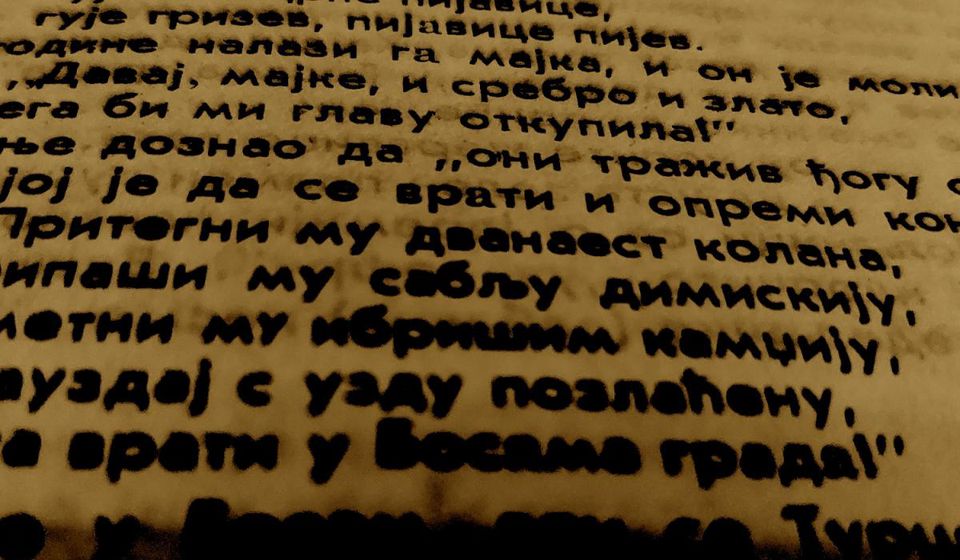 пијавице,
гује гризев, пијавице пијев.
године налази га мајка, и он је моли
„Давај, мајке, и сребро и злато,
би ми главу откупила!"
дознао да „они тражив ђогу
јој је да се врати и опреми
Притегни му дванаест колана,
рипаши му сабљу димискију,
метни му ибришим камџију,
ауздај с узду позлаћену,
врати у Босама града!"
у се Турци